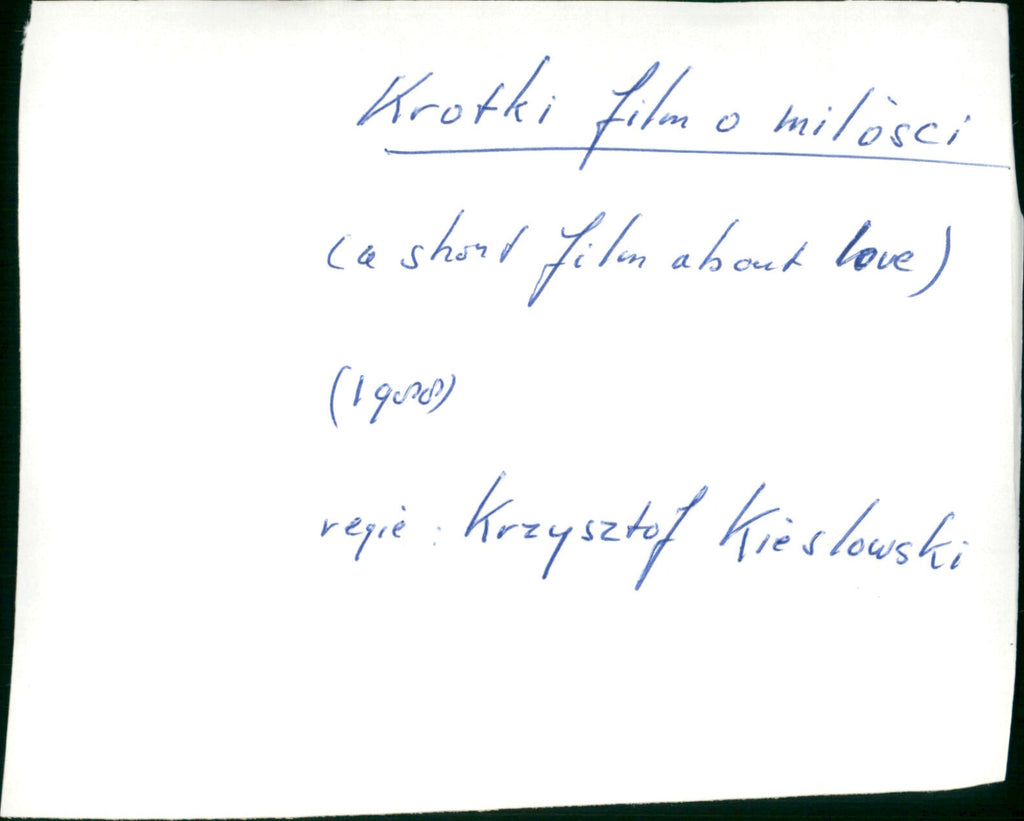 Krotki film o milósci
(a short film about love)
(1988)
regie: Krzysztof Kieslowski